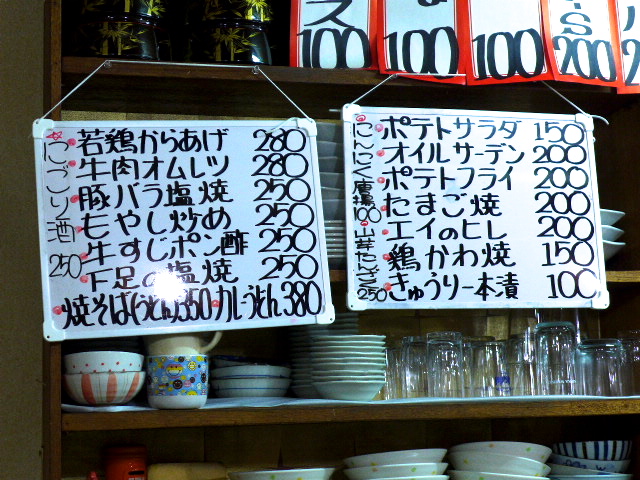 ス
100
100
100
S
200
にごり酒
250
若鶏からあげ 280
牛肉オムレツ 280
豚バラ塩焼 250
もやし炒め 250
牛すじポン酢 250
下足の塩焼 250
焼そば(うどん)350 カレーうどん 380
にんにく唐揚
100
山芋たんざく
250
ポテトサラダ 150
オイルサーデン 200
ポテトフライ 200
たまご焼 200
エイのヒレ 200
鶏かわ焼 150
きゅうり一本漬 100